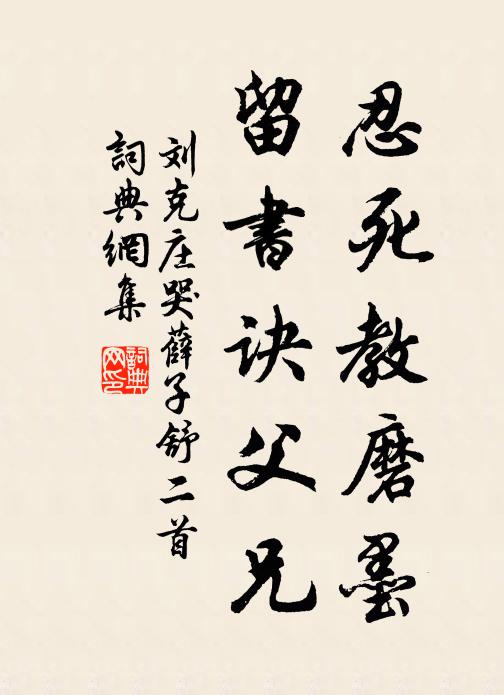 忍死教磨墨
留書訣父兄
刘克庄哭薛子舒二首
詞典網集
詞典网印